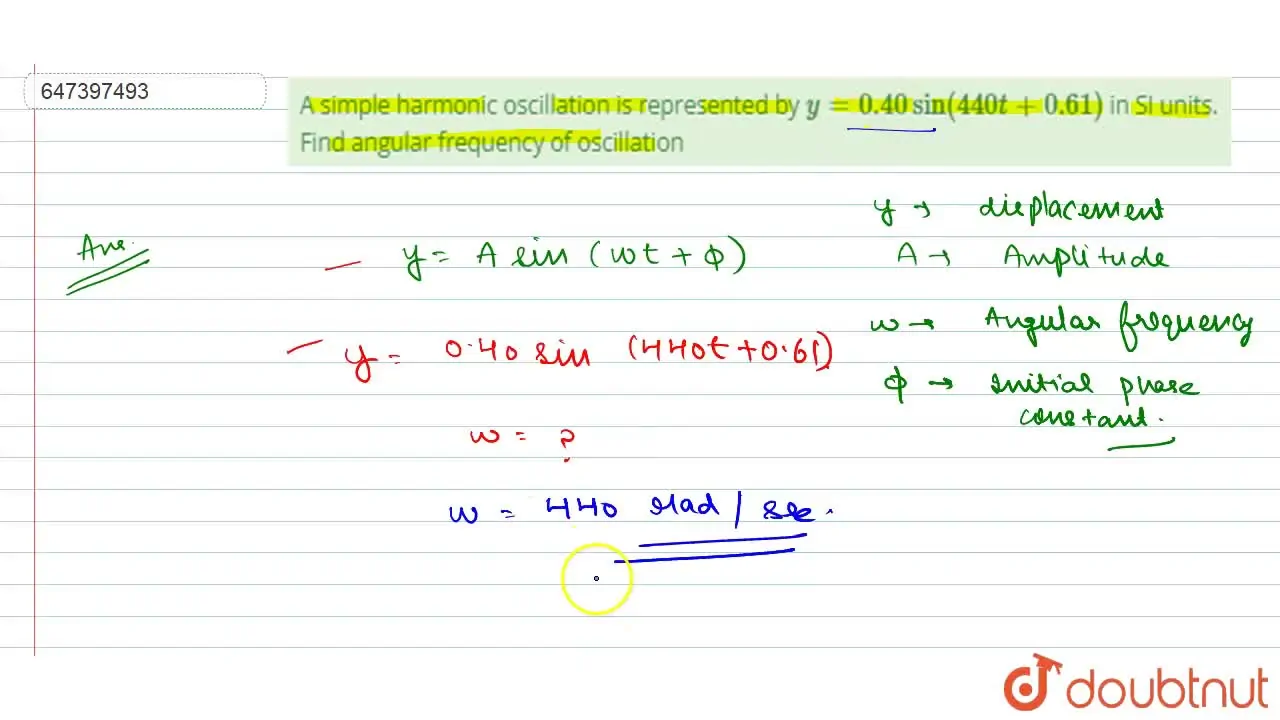 647397493
A simple harmonic oscillation is represented by y = 0.40 sin(440t + 0.61) in SI units.
Find angular frequency of oscillation
Ans.
y = A sin (wt + φ)
y → displacement
A → Amplitude
w → Angular frequency
φ → initial phase
constant.
y = 0.40 sin (440t + 0.61)
w = ?
w = 440 rad / sec.
doubtnut